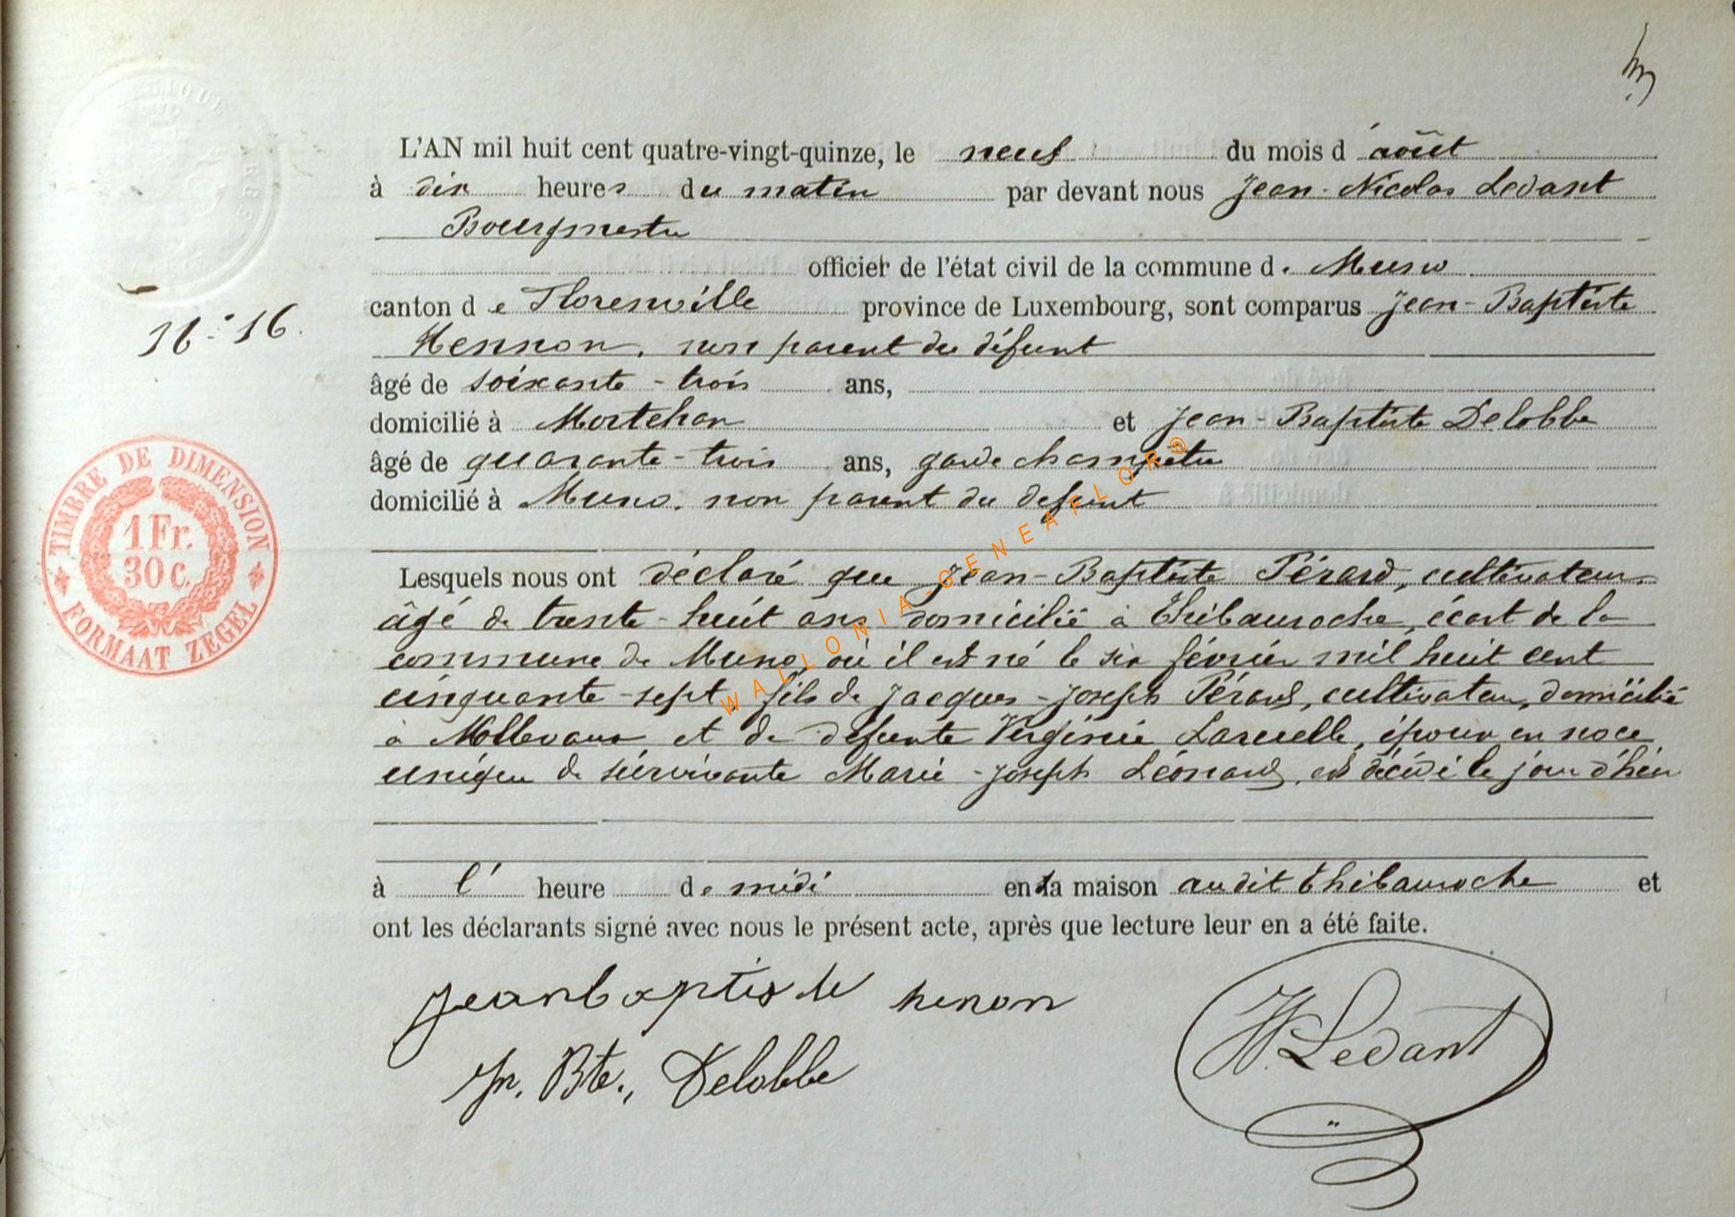 L'AN mil huit cent quatre-vingt-quinze, le neuf du mois d'août
à dix heures du matin par devant nous Jean-Nicolas Ledant
Bourgmestre
officier de l'état civil de la commune de Muno
N° 16.
canton de Florenville province de Luxembourg, sont comparus Jean-Baptiste
Hennon, non parent du défunt
âgé de soixante-trois ans,
domicilié à Mortehan et Jean-Baptiste Delobbe
âgé de quarante-trois ans, garde champêtre
domicilié à Muno, non parent du défunt
TIMBRE DE DIMENSION
1 Fr.
30 C.
FORMAAT ZEGEL
Lesquels nous ont déclaré que Jean-Baptiste Pérard, cultivateur,
âgé de trente-huit ans domicilié à Thibauroche, écart de la
commune de Muno, où il est né le six février mil huit cent
cinquante-sept, fils de Jacques-Joseph Pérard, cultivateur, domicilié
à Mollevaux et de défunte Virginie Laruelle, époux en noce
unique de survivante Marie-Joseph Léonard, est décédé le jour d'hier
à l' heure de midi en la maison audit Thibauroche et
ont les déclarants signé avec nous le présent acte, après que lecture leur en a été faite.
jeanbaptiste henon
Jn. Bte., Delobbe
Ledant
WALLONIA-GENEAFLOR®